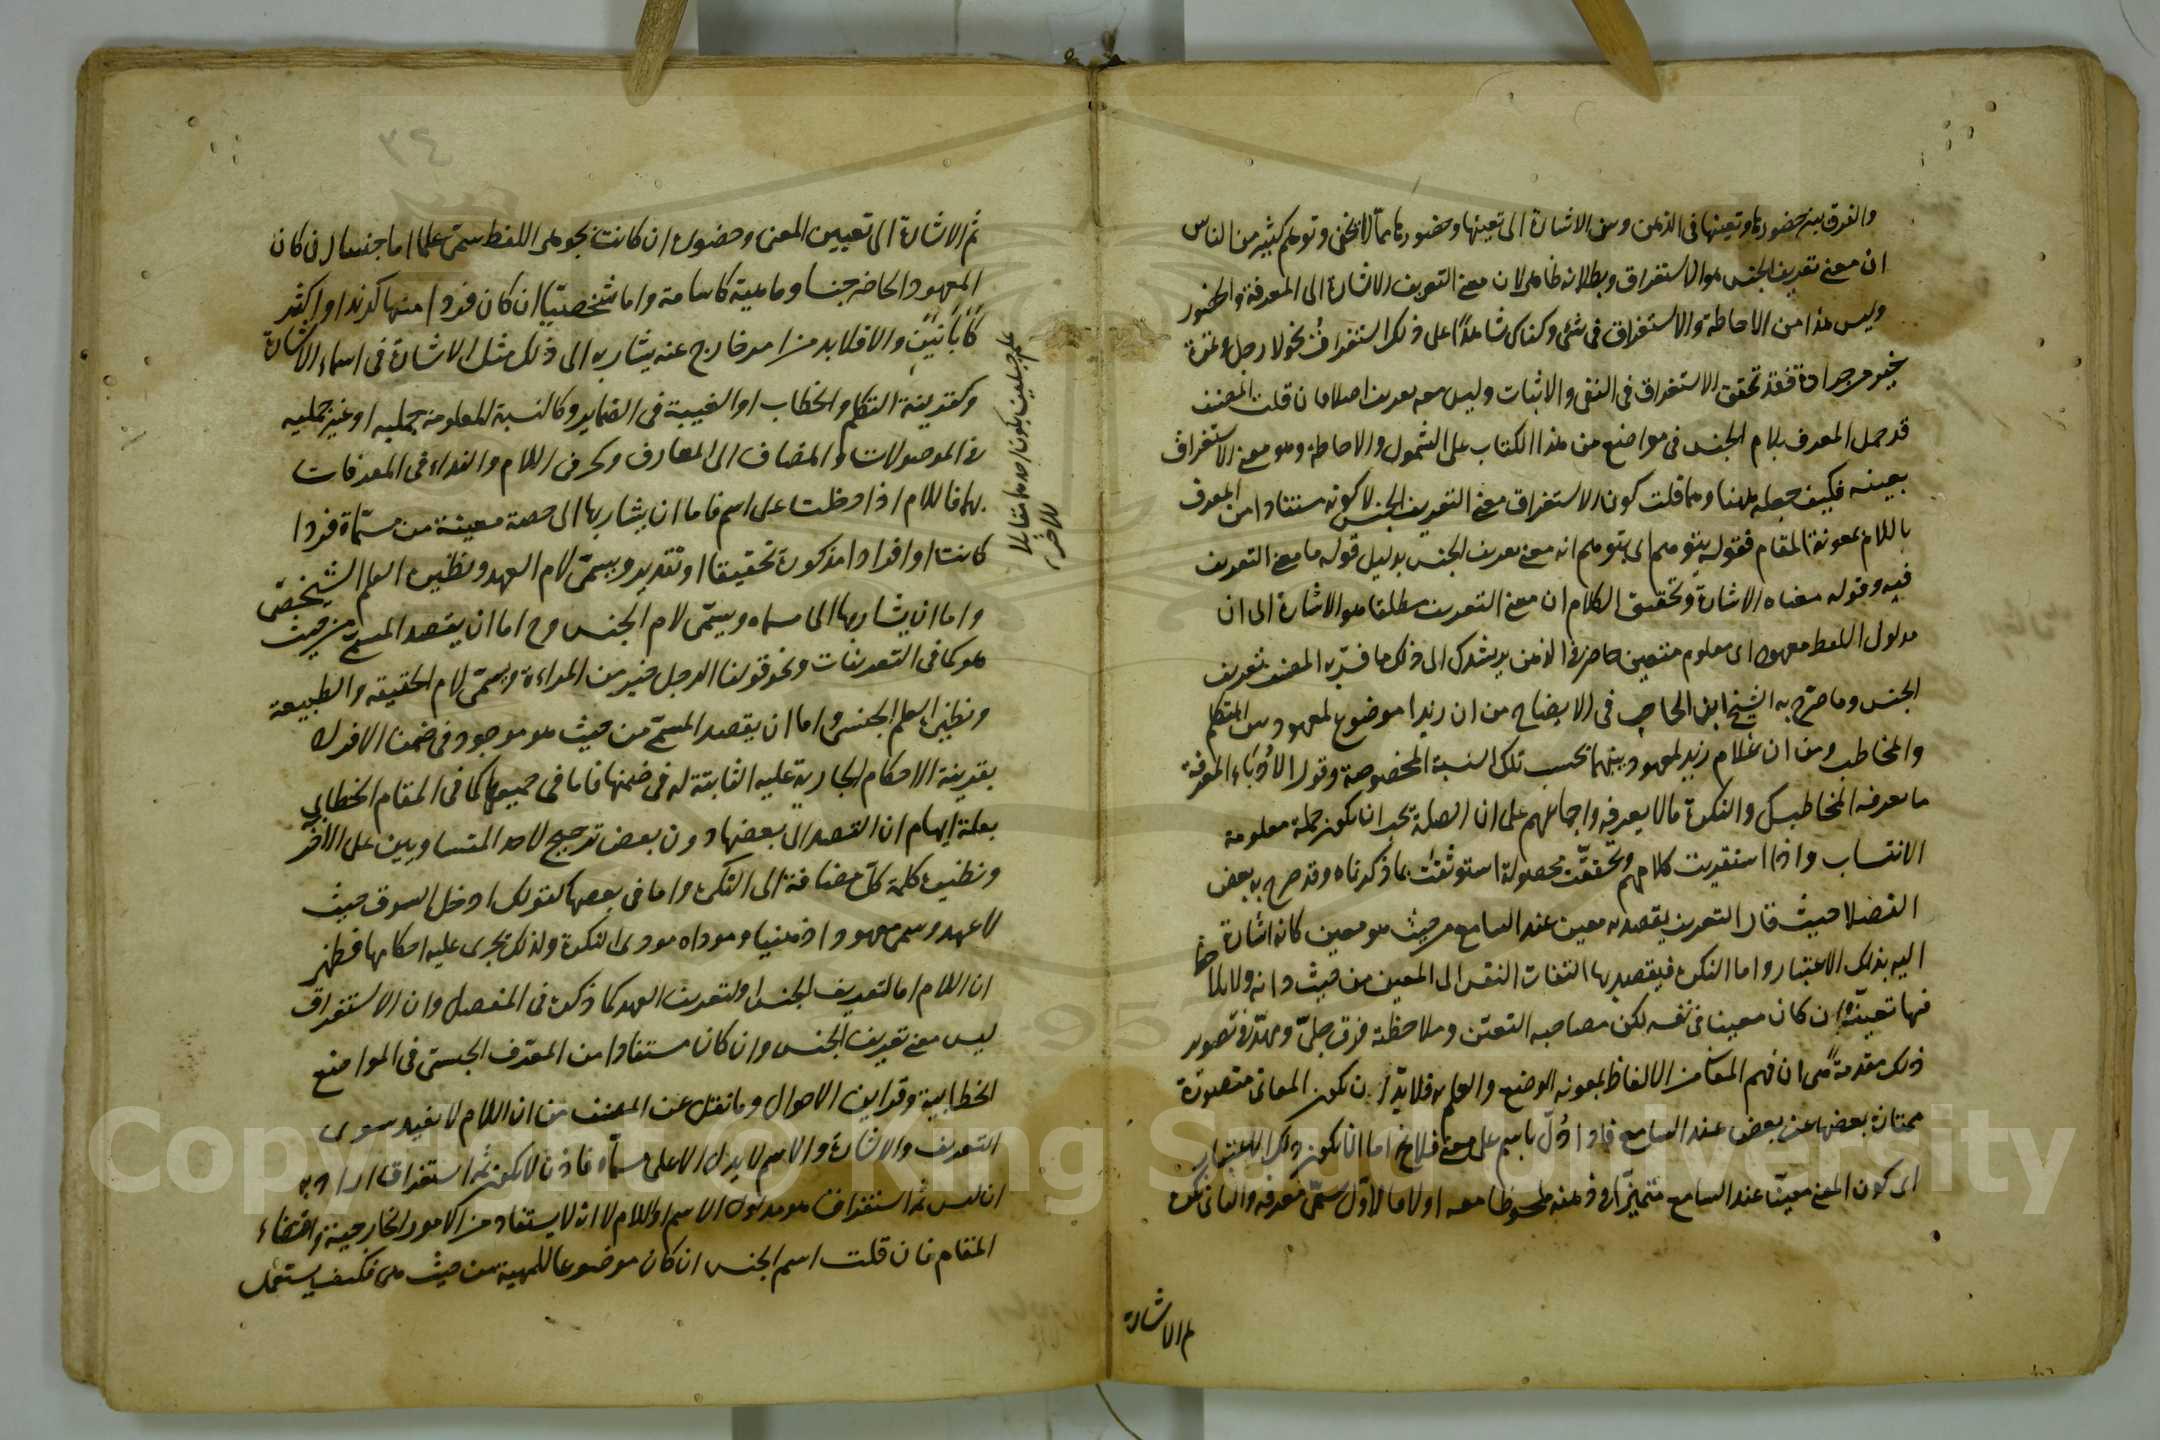 والفرق بين حضورها وتعينها في الذهن وبين الاشارة الى تعينها وحضورها مما لا يخفى وتوهم كثير من الناس
ان معنى تعريف الجنس هو الاستغراق وبطلانه ظاهر لان معنى التعريف الاشارة الى المعرفة والحضور
وليس هذا من الاحاطة والاستغراق في شئ وكفاك شاهدا على ذلك استغراق نحو لا رجل وتمرة
خير من جرادة فقد تحقق الاستغراق في النفي والاثبات وليس معه تعريف اصلا فان قلت المصنف
قد حمل المعرف بلام الجنس في مواضع من هذا الكتاب على الشمول والاحاطة وهو معنى الاستغراق
بعينه فكيف جعله ههنا وهما قلت كون الاستغراق معنى التعريف الجنس لا كونه مستفادا من المعرف
باللام بمعونة المقام فقوله يتوهم اى يتوهم انه معنى تعريف الجنس بدليل قوله ما معنى التعريف
فيه وقوله معناه الاشارة وتحقيق الكلام ان معنى التعريف مطلقا هو الاشارة الى ان
مدلول اللفظ معهود اى معلوم متعين حاضر في الذهن يرشدك الى ذلك ما فسر به المصنف تعريف
الجنس وما صرح به الشيخ ابن الحاجب في الايضاح من ان زيدا موضوع لمعهود بين المتكلم
والمخاطب ومن ان غلام زيد لمعهود بينهما بحسب تلك النسبة المخصوصة وقول الادباء المعرفة
ما يعرفه المخاطبك والنكرة ما لا يعرفه واجماعهم على ان الصلة يجب ان تكون جملة معلومة
الانتساب واذا استقريت كلامهم وتحققت محصوله استوثقت بما ذكرناه وقد صرح به بعض
الفضلا حيث قال التعريف يقصد به معين عند السامع من حيث هو معين كانه اشارة
اليه بذلك الاعتبار واما النكرة فيقصد بها التفات النفس الى المعين من حيث ذاته ولا يلاحظ
فيها تعينه وان كان معينا في نفسه لكن مصاحبة التعين وملاحظته فرق جلى ومهد في تصوير
ذلك مقدمة هى ان فهم المعانى من الالفاظ بمعونة الوضع والعلم به فلا بد ان تكون المعانى متصورة
ممتازة بعضها عن بعض عند السامع فاذا دل باسم على معنى فلا يخ اما ان يكون ذلك الاعتبار
اى كون المعنى معينا عند السامع متميزا في ذهنه ملحوظا معه او لا فالاول يسمى معرفة والثانى نكرة
ثم الاشارة
ثم الاشارة الى تعيين المعنى وحضوره ان كانت بجوهر اللفظ سمى علما اما جنسا ان كان
المعهود الحاضر جنسا وماهية كاسامة واما شخصيا ان كان فردا منها كزيد او اكثر
كابانين والا فلا بد من امر خارج عنه يشار به الى ذلك مثل الاشارة في اسماء الاشارة
وكقرينة التكلم والخطاب او الغيبة في الضماير وكالنسبة المعلومة جملية او غير جملية
في الموصولات والمضاف الى المعارف وكحرفى اللام والنداء في المعرفات
بهما فاللام اذا دخلت على اسم فاما ان يشار بها الى حصة معينة من مسماه فردا
كانت او افرادا مذكورة تحقيقا او تقديرا ويسمى لام العهد ونظيره العلم الشخصى
واما ان يشار بها الى مسماه ويسمى لام الجنس وح اما ان يقصد المسمى من حيث
هو كما في التعريفات ونحو قولنا الرجل خير من المراءة ويسمى لام الحقيقه والطبيعة
ونظيره العلم الجنسى واما ان يقصد المسمى من حيث هو موجود في ضمن الافراد
بقرينة الاحكام الجارية عليه الثابتة له في ضمنها فاما في جميعها كما في المقام الخطابى
بعلة ايهام ان القصد الى بعضها دون بعض ترجيح لاحد المتساويين على الاخر
ونظيره كلمة كل مضافة الى النكرة واما في بعضها كقولك ادخل السوق حيث
لا عهد وسمى معهودا ذهنيا ومؤداه مودى النكرة ولذلك تجرى عليه احكامها فظهر
ان اللام اما لتعريف الجنس او لتعريف العهد كما ذكره في المفصل وان الاستغراق
ليس معنى تعريف الجنس وان كان مستفادا من المعرف الجنسى في المواضع
الخطابية وقراين الاحوال وما نقل عن المصنف من ان اللام لا تفيد سوى
التعريف والاشارة والاسم لا يدل الا على مسماه فاذن لا يكون ثم استغراق اراد به
ان ليس ثم استغراق هو مدلول الاسم او اللام لا انه لا يستفاد من الامور الخارجية واقتضاء
المقام فان قلت اسم الجنس ان كان موضوعا للمهية من حيث هى فكيف يستعمل
علم جبلين يكون احدهما متقابلا
للاخر